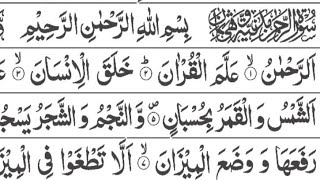 سورة الرحمن مدنية بسم الله الرحمن الرحيم
الرحمن ۝۱ علم القران ۝۲ خلق الانسان ۝۳
الشمس و القمر بحسبان ۝۵ و النجم و الشجر يسجد
رفعها و وضع الميزان ۝۷ الا تطغوا في الميز